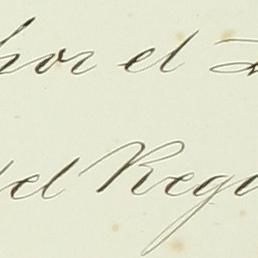 por el
del Regi